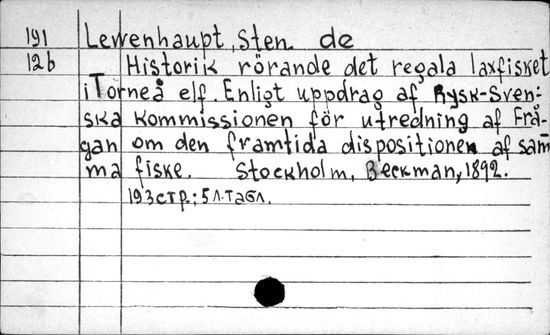 191 Lewenhaupt, Sten de
12b Historik rörande det regala laxfisket
i Torneå elf. Enligt uppdrag af Rysk-Sven-
ska Kommissionen för utredning af Frå-
gan om den framtida dispositionen af sam-
ma fiske. Stockholm, Beckman, 1892.
193стр.; 5 л.табл.